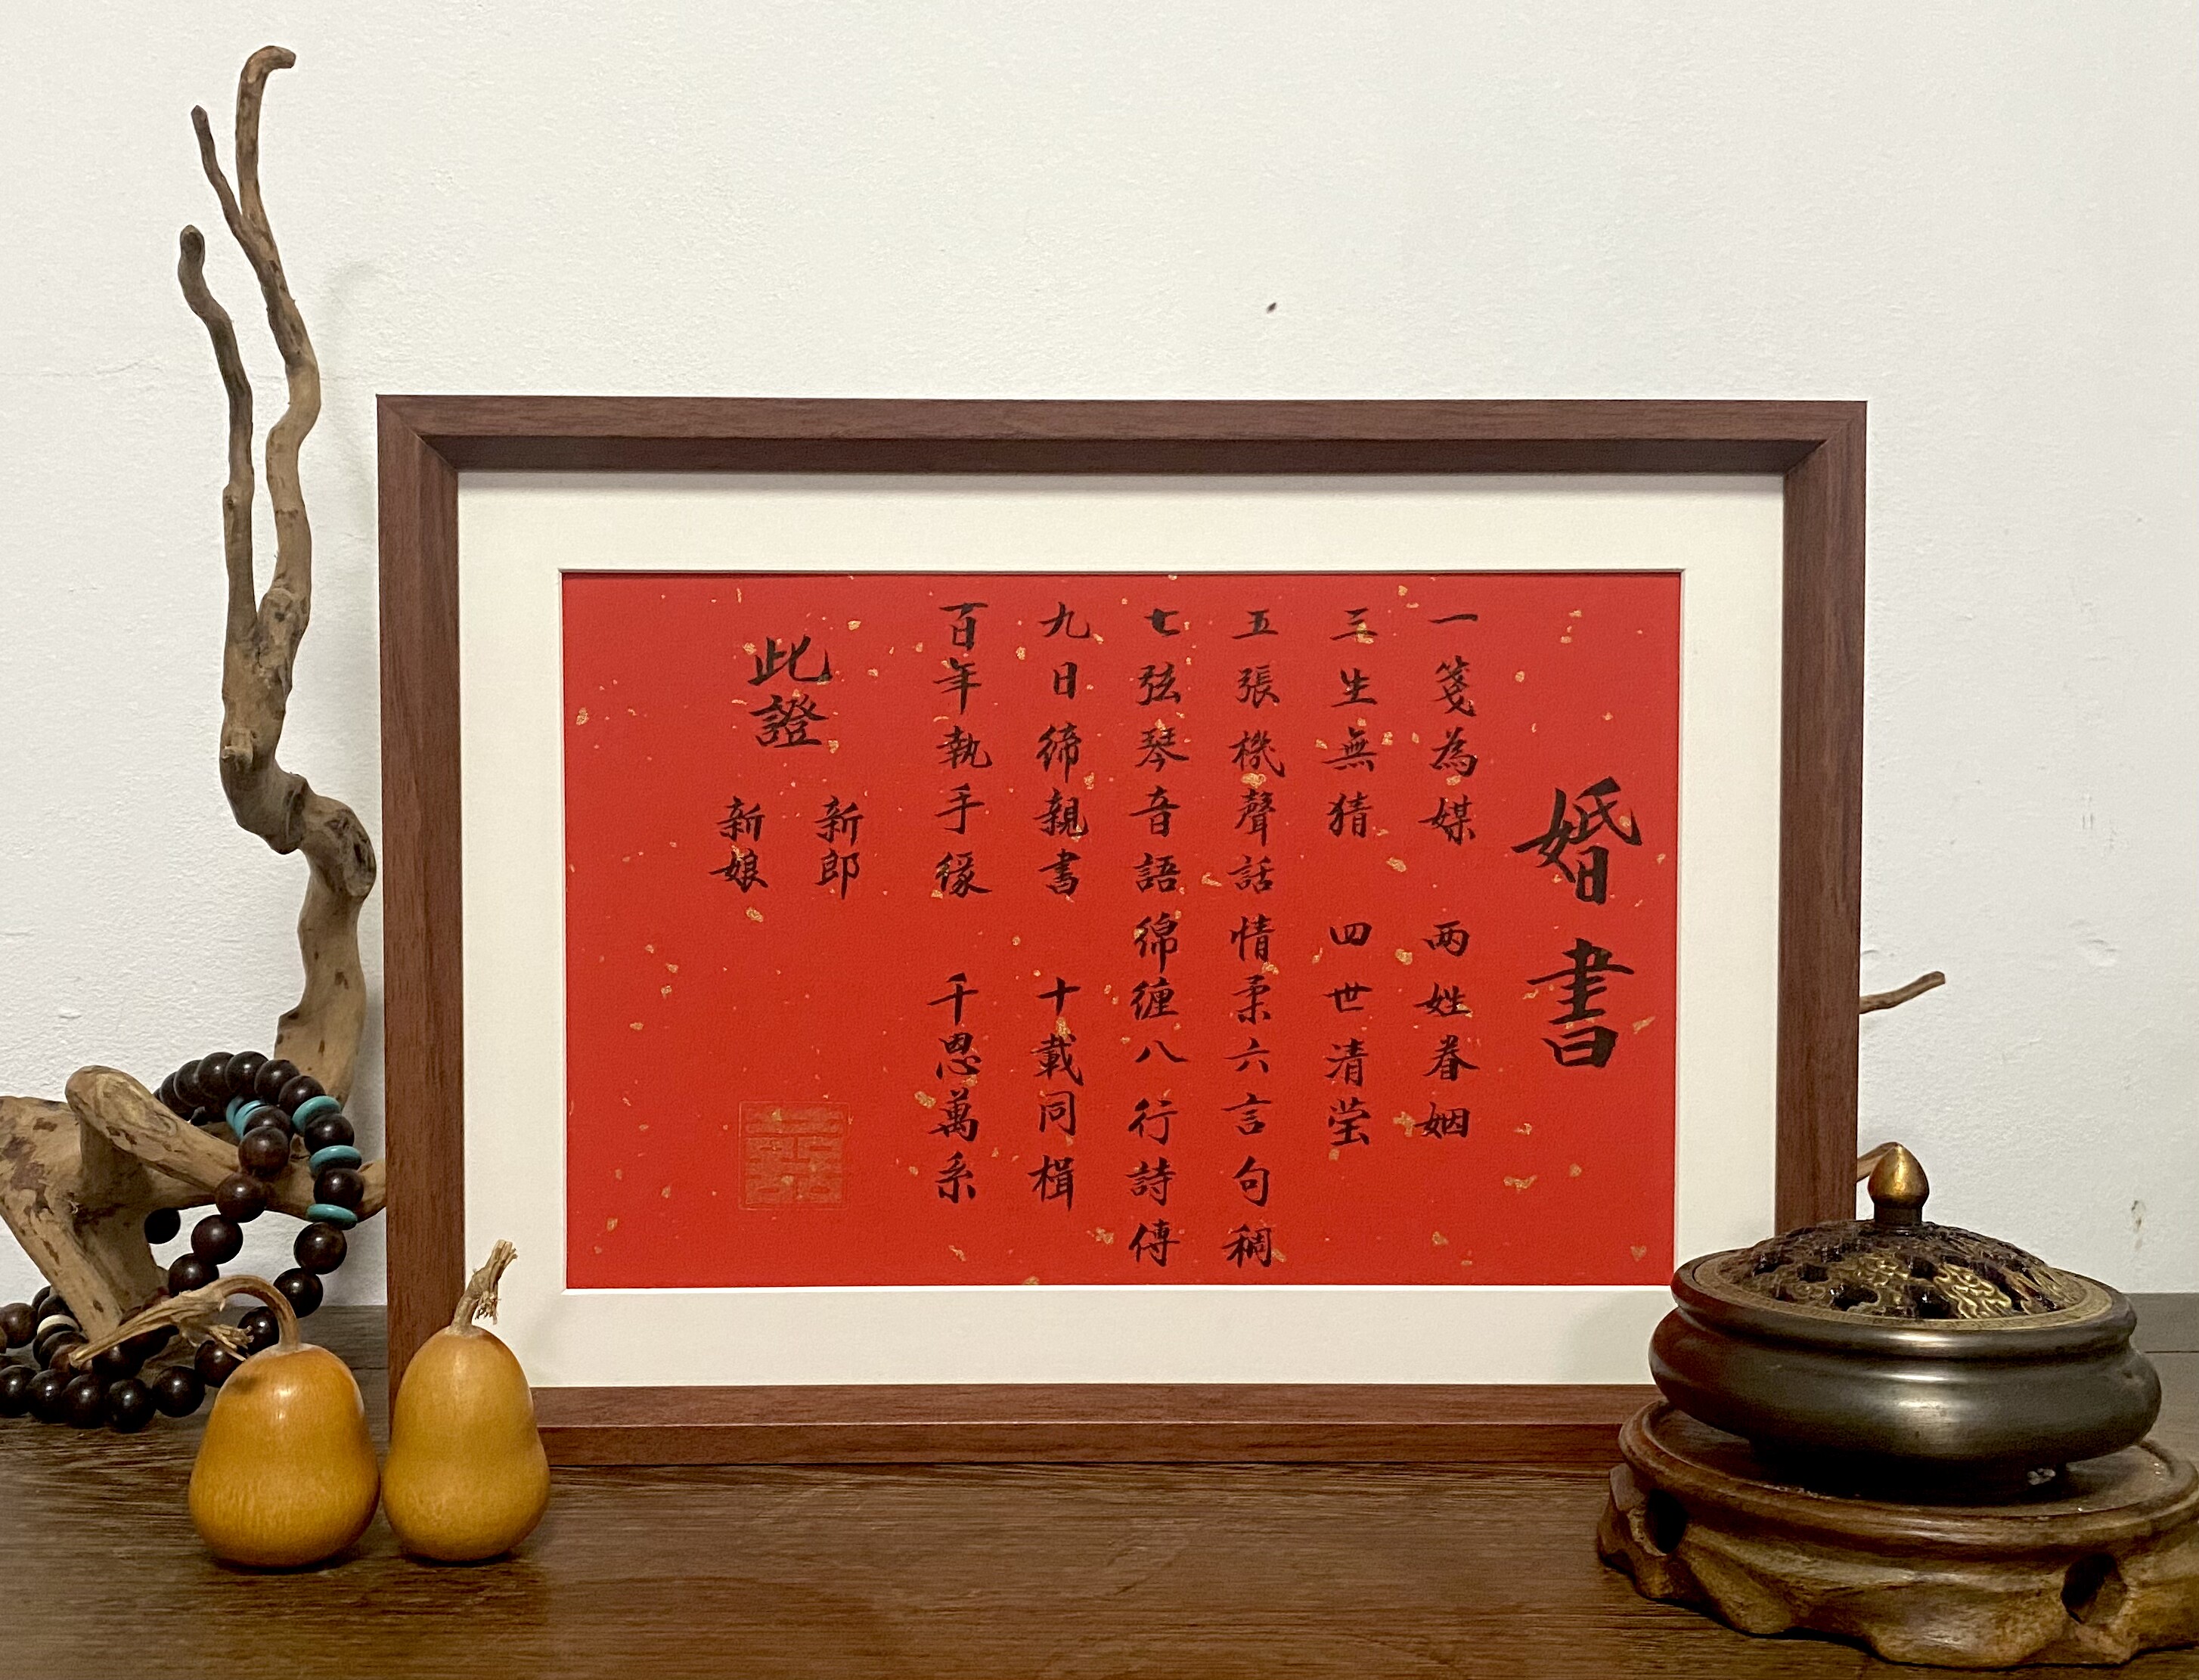 婚書
一箋為媒 两姓眷姻
三生無猜 四世清莹
五張機聲話情柔六言句稠
七弦琴音語綿纏八行詩傳
九日締親書 十載同楫
百年執手緣 千恩萬系
此證
新郎
新娘